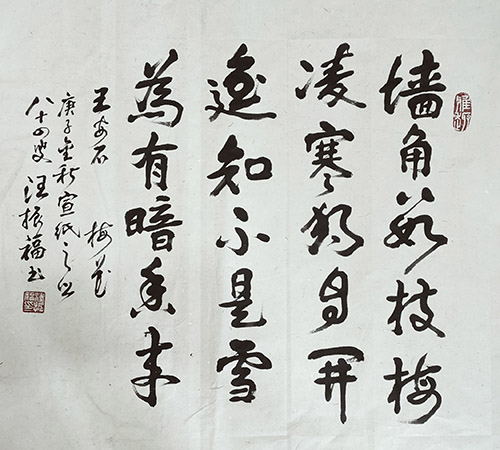 墙角数枝梅
凌寒独自开
遥知不是雪
为有暗香来
王安石 梅花
庚子金秋宣纸之上
八十四叟汪振福书